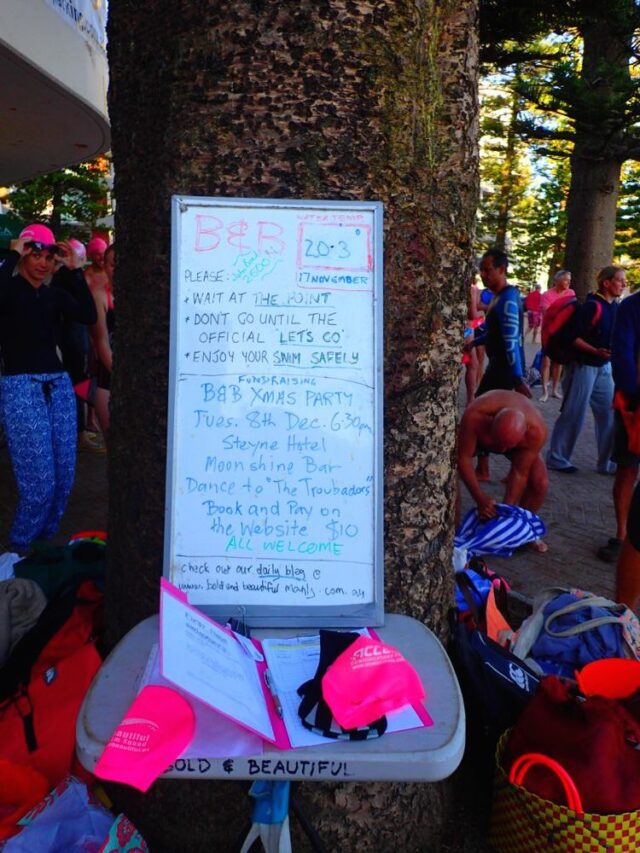 B&B
WATER TEMP
20.3°
17 NOVEMBER
PLEASE:
• WAIT AT THE POINT
• DONT GO UNTIL THE
OFFICIAL 'LETS GO'
• ENJOY YOUR SWIM SAFELY
FUNDRAISING
B&B XMAS PARTY
Tues. 8th Dec. 6:30pm
Steyne Hotel
Moonshine Bar
Dance to "The Troubadors"
Book and Pay on
the Website $10
ALL WELCOME
check out our daily blog @
www.boldandbeautifulmanly.com.au
BOLD & BEAUTIFUL